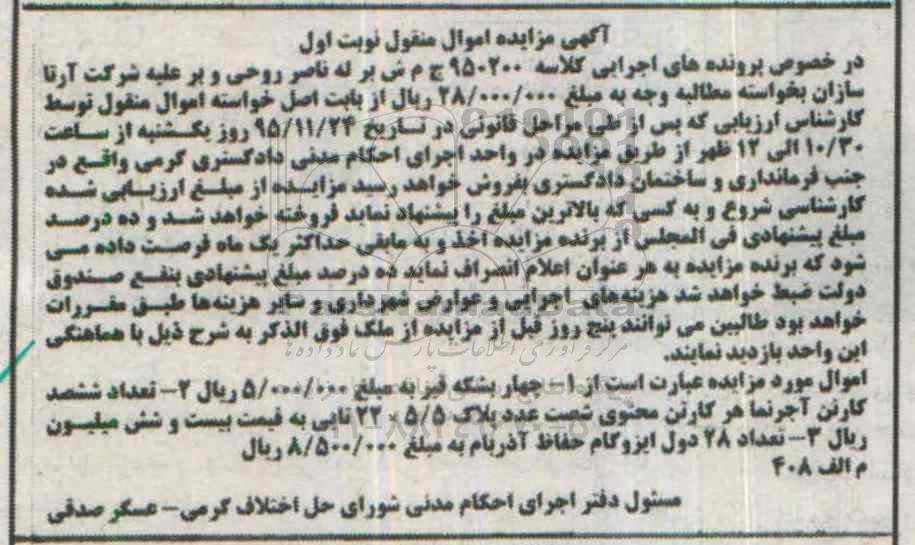 آگهی مزایده اموال منقول نوبت اول
در خصوص پرونده های اجرایی کلاسه ۹۵۰۲۰۰ ج م ش بر له ناصر روحی و بر علیه شرکت آرتا
سازان بخواسته مطالبه وجه به مبلغ ۲۸/۰۰۰/۰۰۰ ریال از بابت اصل خواسته اموال منقول توسط
کارشناس ارزیابی که پس از طی مراحل قانونی در تاریخ ۹۵/۱۱/۲۴ روز یکشنبه از ساعت
۱۰/۳۰ الی ۱۲ ظهر از طریق مزایده در واحد اجرای احکام مدنی دادگستری گرمی واقع در
جنب فرمانداری و ساختمان دادگستری بفروش خواهد رسید مزایده از مبلغ ارزیابی شده
کارشناسی شروع و به کسی که بالاترین مبلغ را پیشنهاد نماید فروخته خواهد شد و ده درصد
مبلغ پیشنهادی فی المجلس از برنده مزایده اخذ و به مابقی حداکثر یک ماه فرصت داده می
شود که برنده مزایده به هر عنوان اعلام انصراف نماید ده درصد مبلغ پیشنهادی بنفع صندوق
دولت ضبط خواهد شد هزینه‌های اجرایی و عوارض شهرداری و سایر هزینه‌ها طبق مقررات
خواهد بود طالبین می توانند پنج روز قبل از مزایده از ملک فوق الذکر به شرح ذیل با هماهنگی
این واحد بازدید نمایند.
اموال مورد مزایده عبارت است از ۱- چهار بشکه قیر به مبلغ ۵/۰۰۰/۰۰۰ ریال ۲- تعداد ششصد
کارتن آجرنما هر کارتن محتوی شصت عدد پلاک ۵/۵ × ۲۲ تایی به قیمت بیست و شش میلیون
ریال ۳- تعداد ۲۸ دول ایزوگام حفاظ آذربام به مبلغ ۸/۵۰۰/۰۰۰ ریال
م الف ۴۰۸
مسئول دفتر اجرای احکام مدنی شورای حل اختلاف گرمی- عسگر صدقی